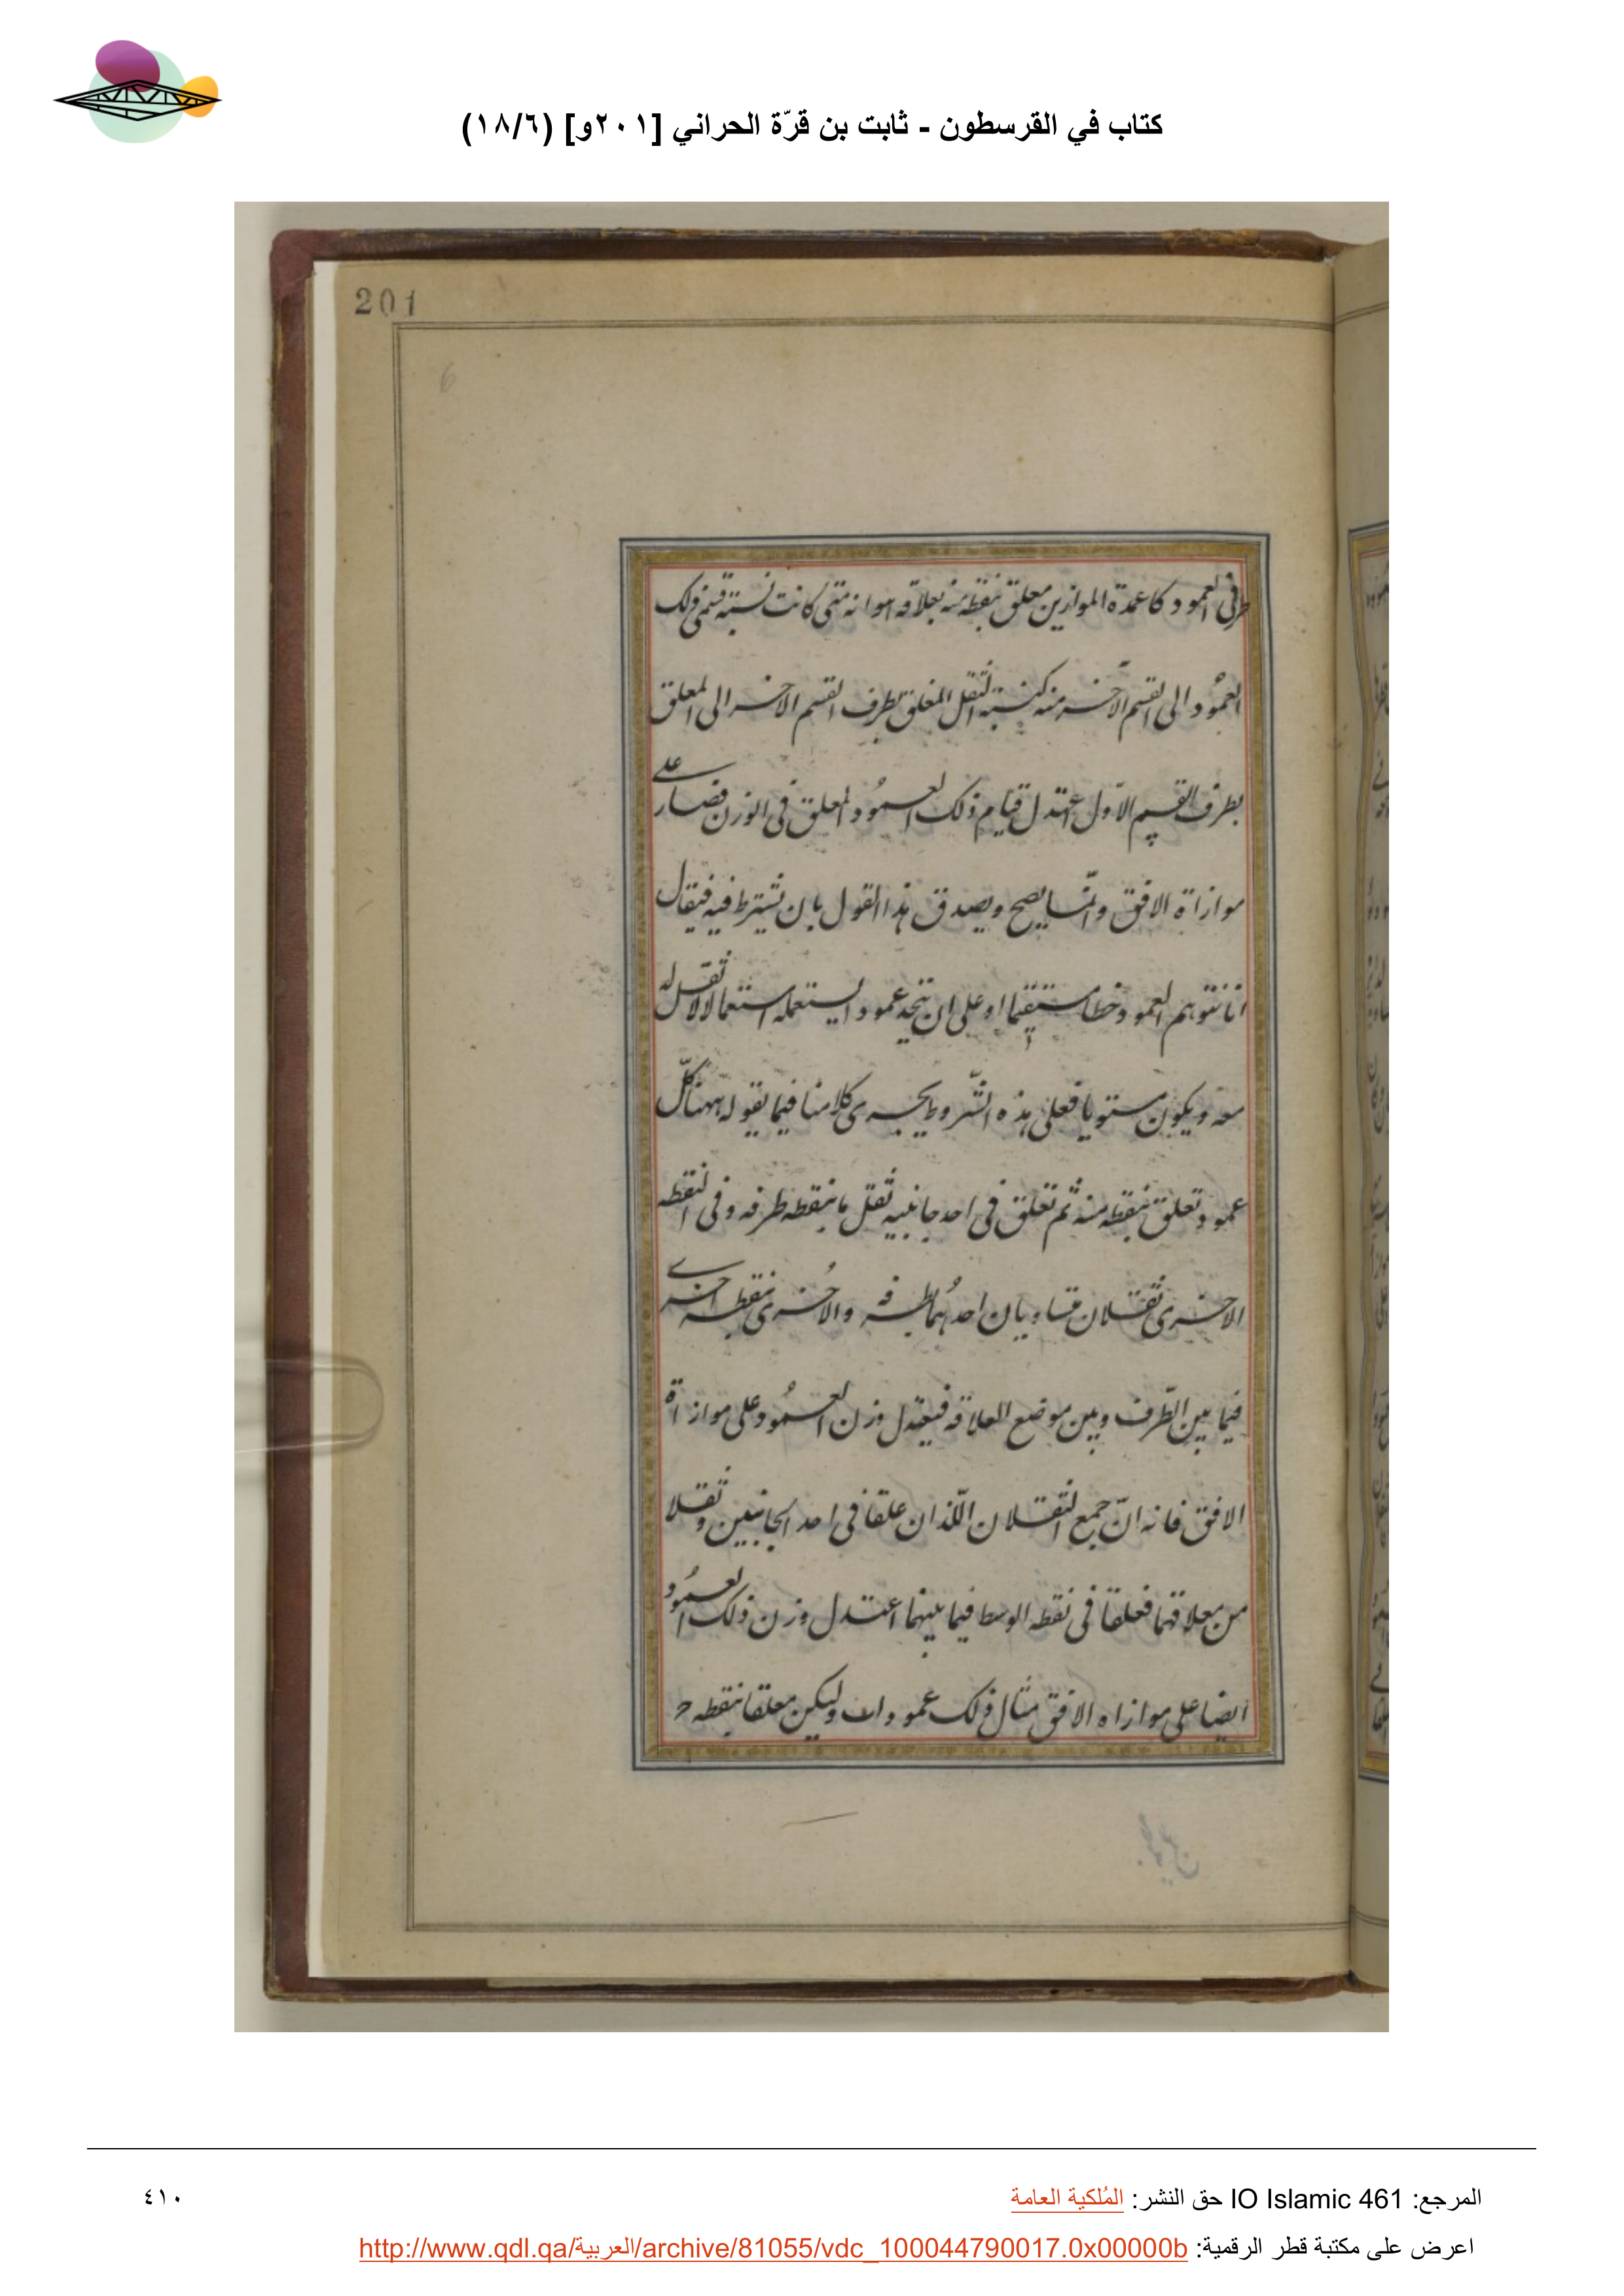 كتاب في القرسطون - ثابت بن قرّة الحراني [٢٠١و] (١٨/٦)
201
6
طرفى العمود كاعمدة الموازين معلق بنقطه منه بعلاقه اموانه متى كانت نسبة قسمى ذلك
العمُود الى القسم الآخر منه كنسبة الثقل المعلق بطرف القسم الاخر الى المعلق
بطرف القسم الاوّل اعتدل قيام ذلك العمُود المعلق فى الوزن فصار على
موازاة الافق وانّما يصح ويصدق هذا القول بان نشترط فيه فيقال
انا نتوهم العمود خطا مستقيما او على ان نتخذ عمودا يستعمله استعمالا لا ثقل له
معه ويكون مستويا فعلى هذه الشّروط يجرى كلامنا فيما نقوله ههنا كلّ
عمود تعلق بنقطه منه ثم تعلق فى احد جانبيه ثقل ما بنقطه طرفه وفى النقطه
الاخرى ثقلان متساويان احدُهما بطرفه والاُخرى بنقطه اخرى
فيما بين الطّرف وبين موضع العلاقه فيعتدل وزن العمُود على موازاة
الافق فانه انّ جمع الثقلان اللّذان علقا فى احد الجانبين ونقلا
من معلاقهما فعلقا فى نقطه الوسط فيما بينهما اعتدل وزن ذلك العمُود
ايضا على موازاه الافق مثال ذلك عمود اب وليكن معلقا بنقطه ح
المرجع: IO Islamic 461 حق النشر: المُلكية العامة
٤١٠
اعرض على مكتبة قطر الرقمية: http://www.qdl.qa/العربية/archive/81055/vdc_100044790017.0x00000b